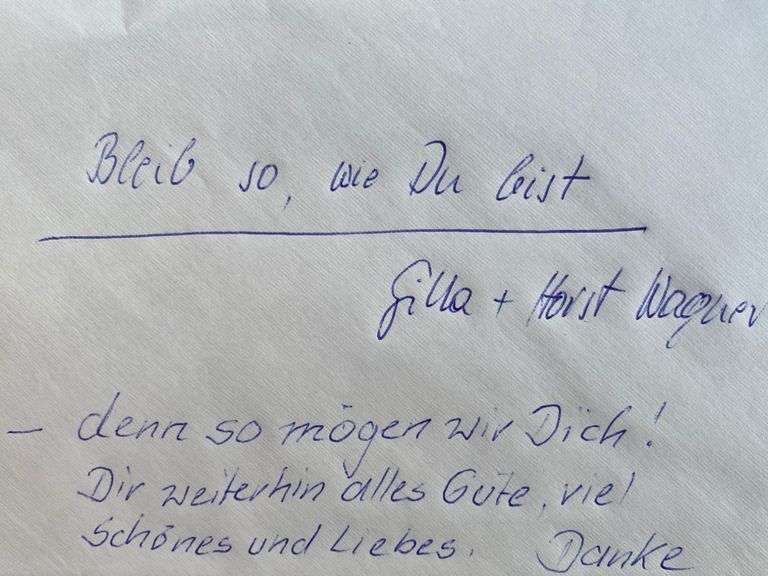 Bleib so, wie Du bist
Gilla + Horst Wagner
– denn so mögen wir Dich!
Dir weiterhin alles Gute, viel
Schönes und Liebes. Danke